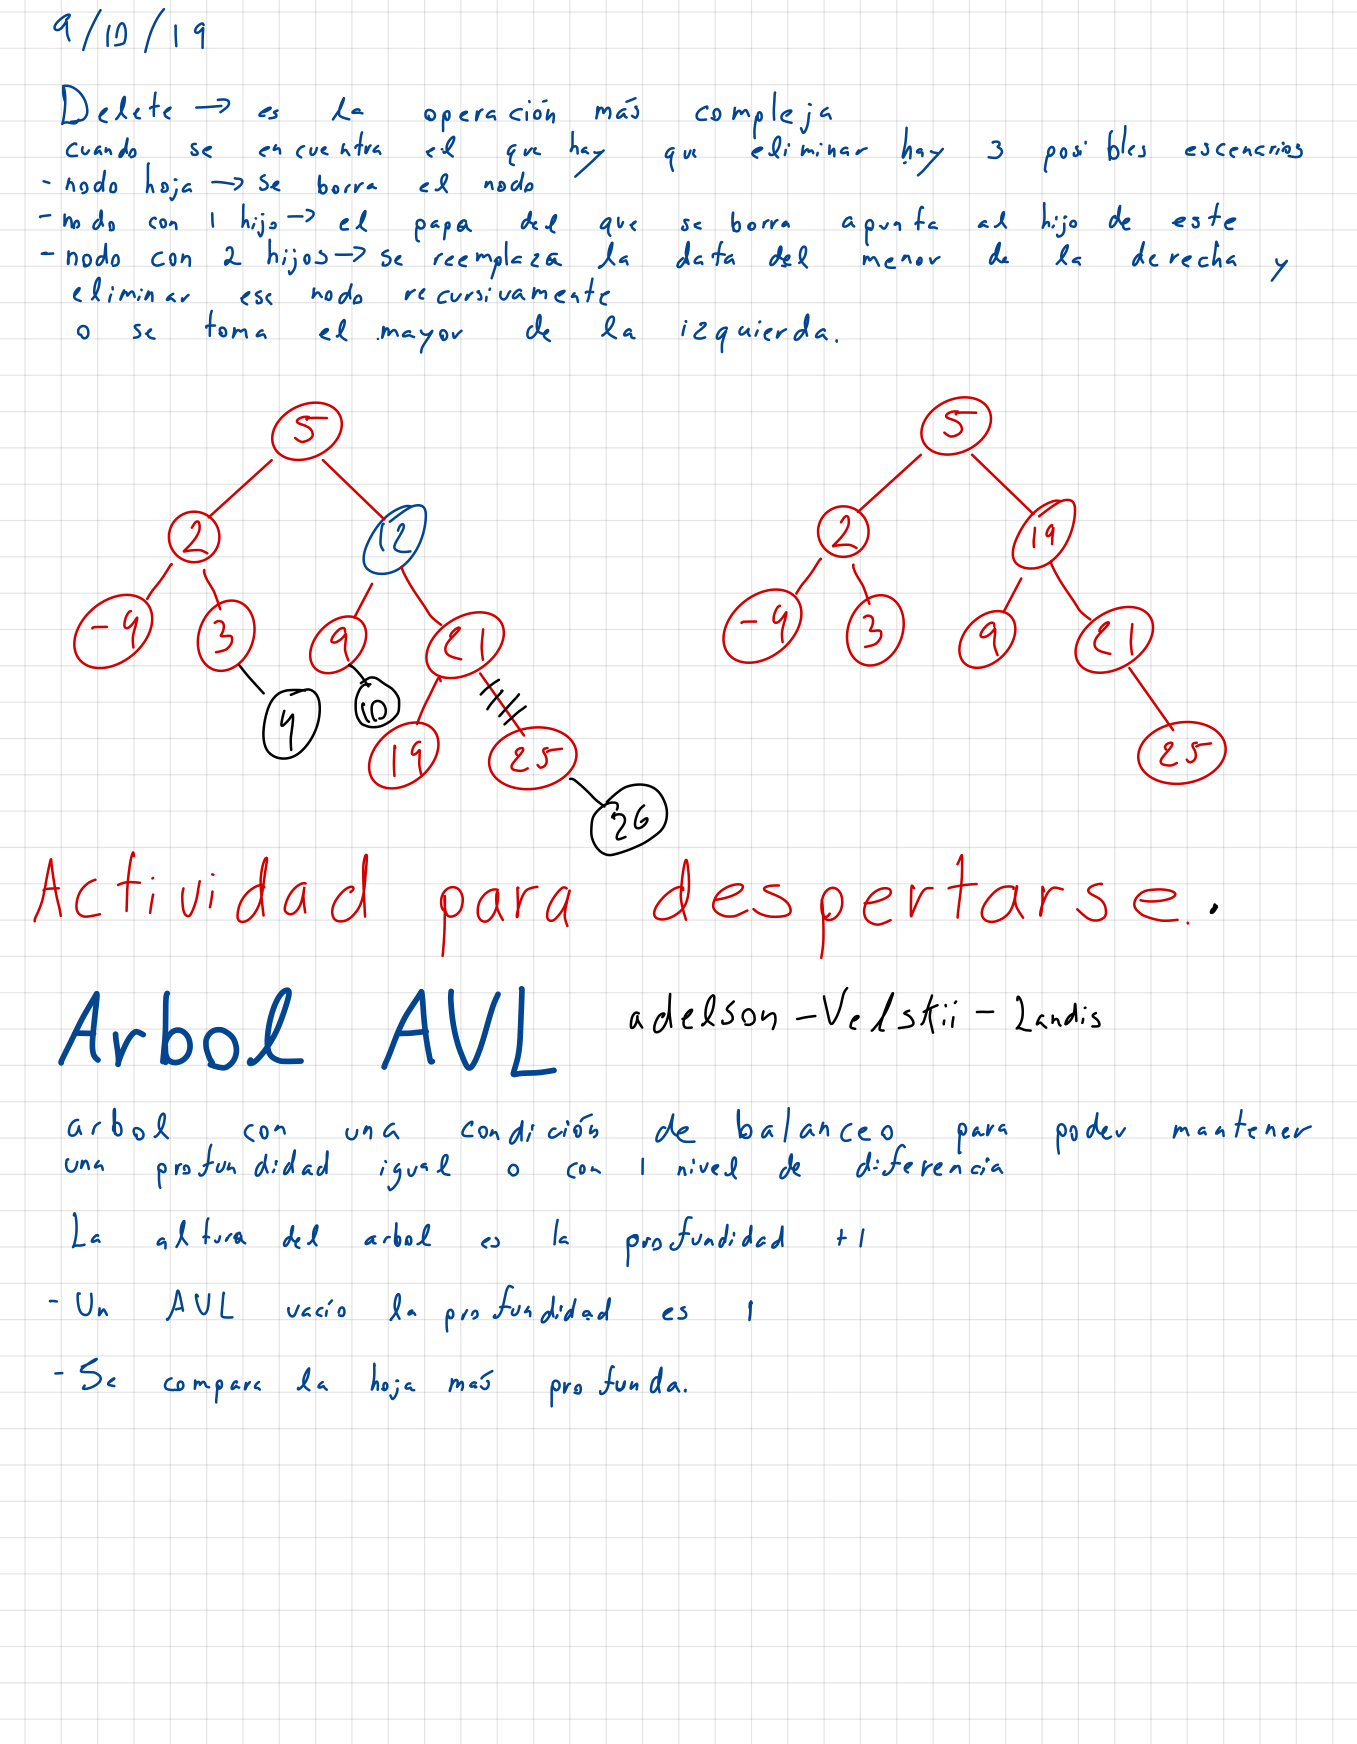 9/10/19
Delete → es la operación más compleja
cuando se encuentra el que hay que eliminar hay 3 posibles escenarios
- nodo hoja → se borra el nodo
- nodo con 1 hijo → el papa del que se borra apunta al hijo de este
- nodo con 2 hijos → se reemplaza la data del menor de la derecha y
eliminar ese nodo recursivamente
o se toma el mayor de la izquierda.
5
5
2
12
2
19
-9
3
9
21
-9
3
9
21
4
10
19
25
25
26
Actividad para despertarse..
Arbol AVL
adelson-Velskii-Landis
arbol con una condición de balanceo para poder mantener
una profundidad igual o con 1 nivel de diferencia
La altura del arbol es la profundidad +1
- Un AVL vacío la profundidad es 1
- Se compara la hoja más profunda.